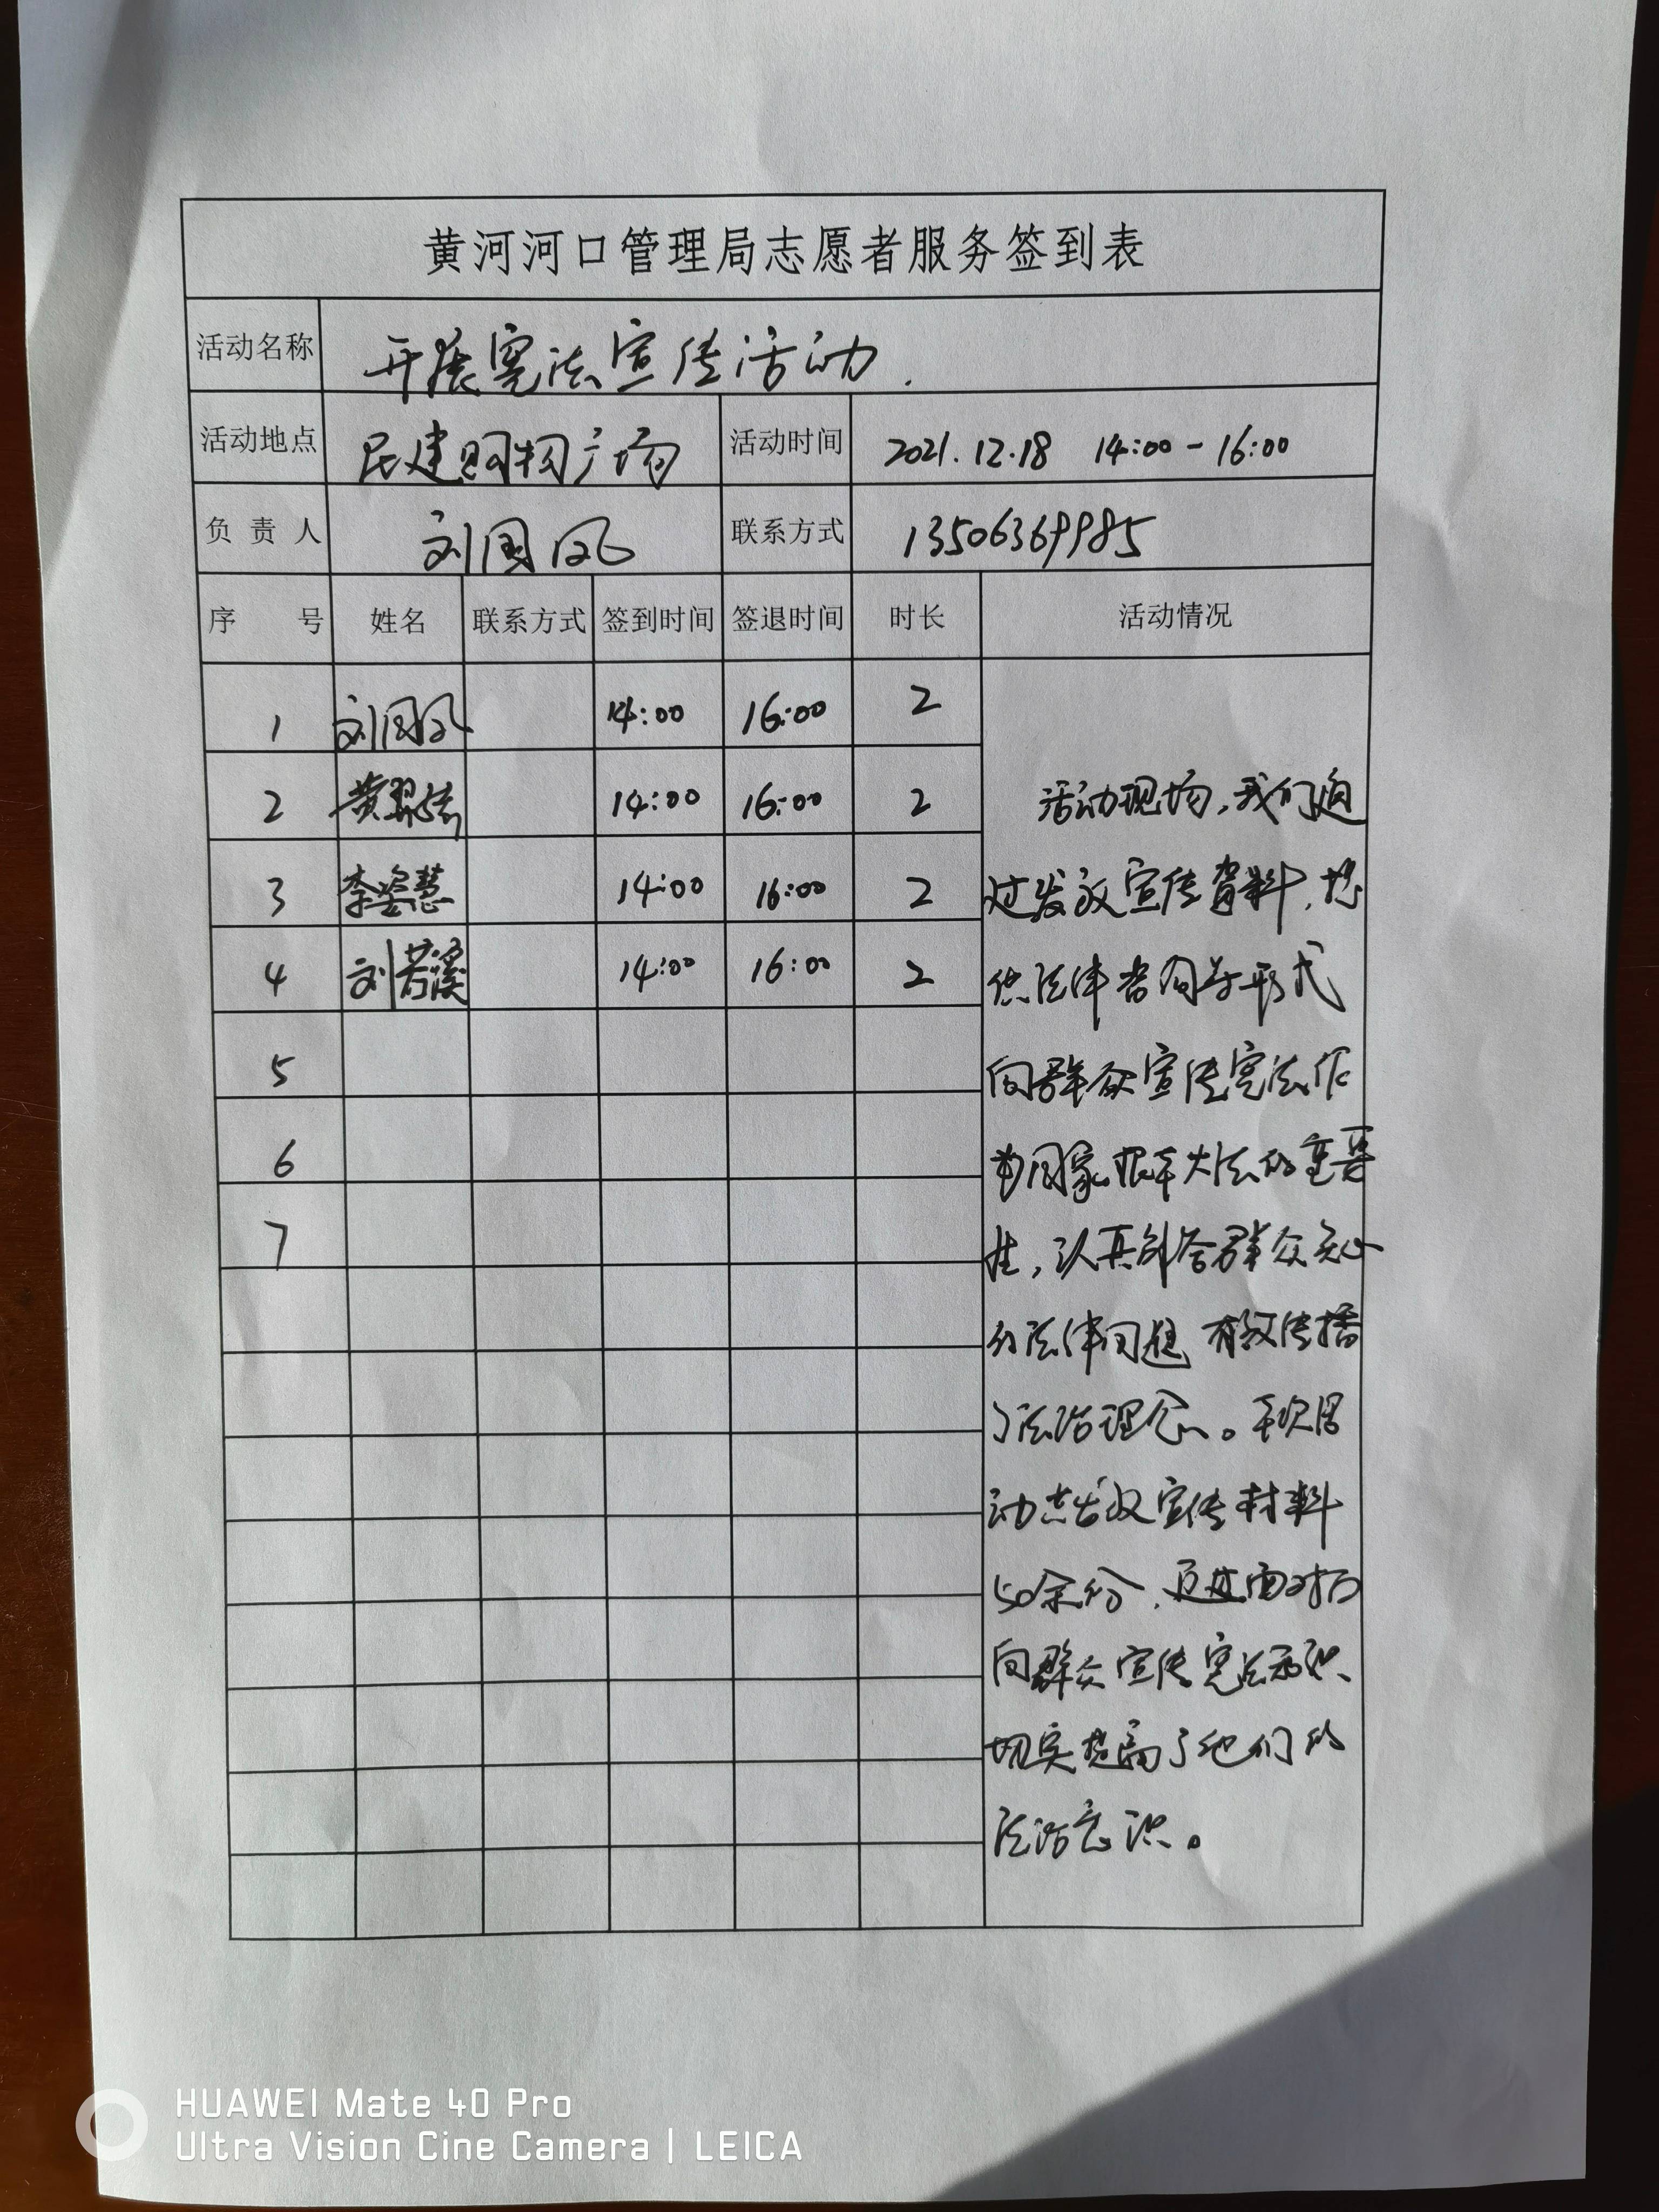 黄河河口管理局志愿者服务签到表
活动名称 开展宪法宣传活动.
活动地点 民建购物广场 活动时间 2021.12.18 14:00-16:00
负责人 刘国凤 联系方式 13506369985
序号 姓名 联系方式 签到时间 签退时间 时长 活动情况
1 刘国凤 14:00 16:00 2
2 黄 14:00 16:00 2
3 李姿慧 14:00 16:00 2
4 刘若溪 14:00 16:00 2
5
6
7
活动现场,我们通
过发放宣传资料,提
供法律咨询等形式
向群众宣传宪法作
为国家根本大法的重要
性,认真解答群众关心
的法律问题 有效传播
了法治理念。本次活
动共发放宣传材料
50余份,
向群众宣传宪法知识、
切实提高了他们的
法治意识。
HUAWEI Mate 40 Pro
Ultra Vision Cine Camera | LEICA